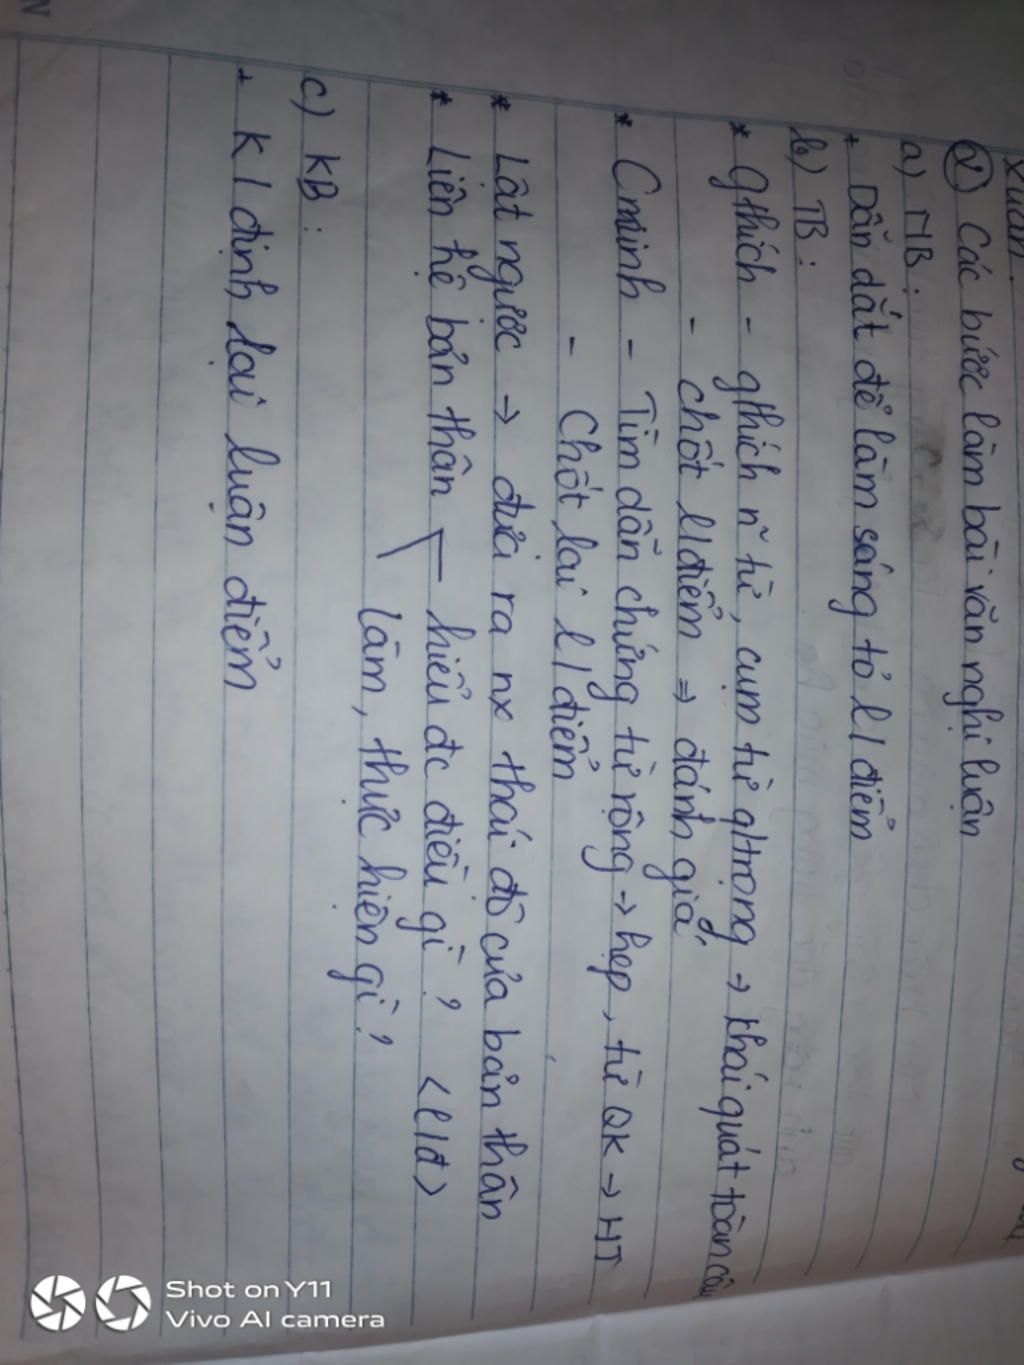 xuân.
② Các bước làm bài văn nghị luận
a) MB:
+ Dẫn dắt để làm sáng tỏ l/điểm
b) TB:
* Gthích - gthích n~ từ, cụm từ q/trọng → khái quát toàn câu
- chốt l/điểm ⇒ đánh giá
* Cminh - Tìm dẫn chứng từ rộng → hẹp, từ QK → HT
- Chốt lại l/điểm
* Lật ngược → đưa ra nx thái độ của bản thân
* Liên hệ bản thân - hiểu đc điều gì? <l/đ>
làm, thực hiện gì?
c) KB:
+ K/định lại luận điểm
Shot on Y11
Vivo AI camera